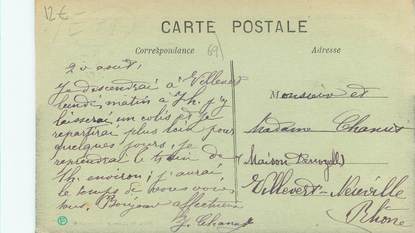 12 €
CARTE POSTALE
Correspondance
69
Adresse
20 août,
Je descendrai à Villevert
lundi matin à 7h, j'y
laisserai un colis et je
repartirai plus loin pour
quelques jours, je
reprendrai le train de
7h. environ; j'aurai
le temps de vous voir
Bonjour affectueux
J. Chanut
Monsieur et
Madame Chanut
Maison
Villevert-Neuville
Rhône